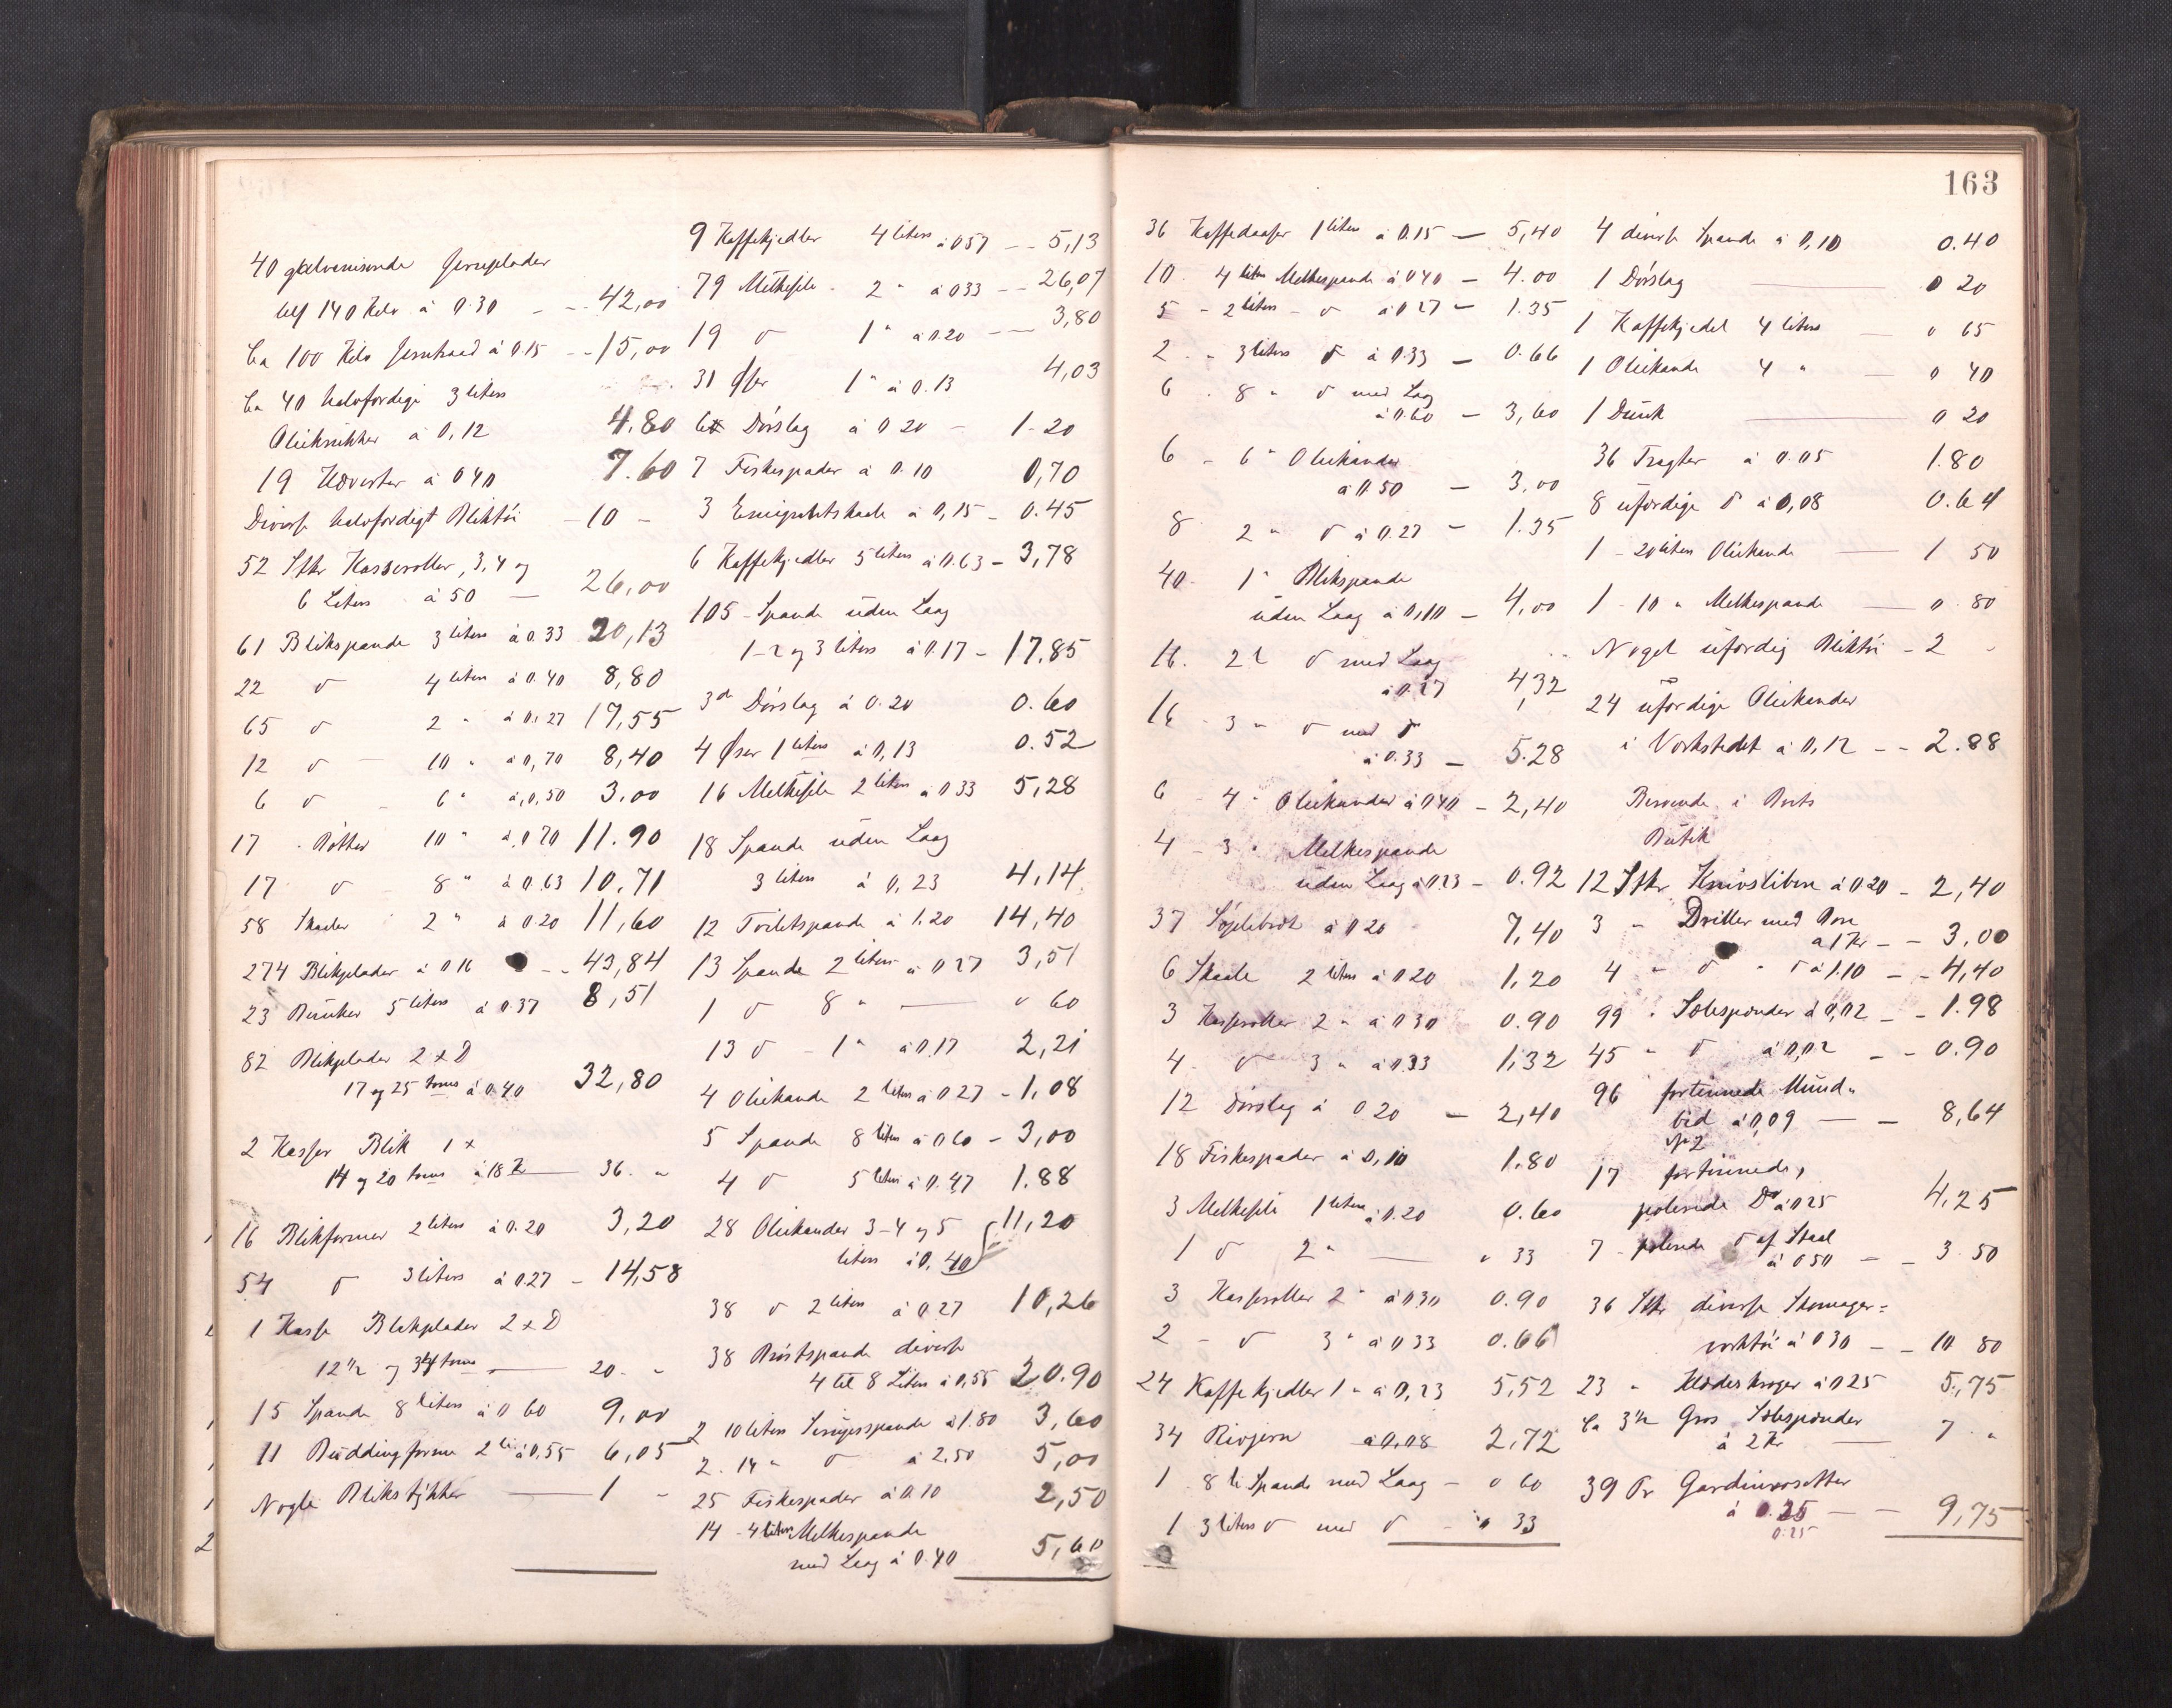 40 galvaniserede Jernplader
140 Kilo á 0.30 - - 42,00
Ca 100 Kilo Jerntraad á 0.15 - - 15,00
Ca 40 halvfærdige 3 liters
Oliekrukker á 0,12 4.80
19 á 0 40 7.60
Diverse halvfærdigt Bliktöi - 10 -
52 Stkr Kasseroller, 3, 4 og
6 Liters á 50 — 26,00
61 Blikspande 3 liters á 0.33 20,13
22 d 4 liters á 0.40 8,80
65 d 2 " á 0.27 17,55
12 d - 10 " á 0,70 8,40
6 d - 6 " á 0,50 3.00
17 - Bötter 10 " á 0 70 11.90
17 d - 8 " á 0.63 10.71
58 Skaaler 2 " á 0 20 11,60
274 Blikplader á 0 16 - - 43,84
23 Dunker 5 liters á 0.37 8,51
82 Blikplader 2 x D
17 og 25 toms á 0.40 32,80
2 Kasser Blik 1 x
14 og 20 toms á 18 Kr — 36. "
16 Blikformer 2 liters á 0.20 3,20
54 d 3 liters á 0.27 - 14,58
1 Kasse Blikplader 2 x D
12 1/2 og toms — 20. "
15 Spande 8 liters á 0 60 9,00
11 Buddingforme 2 li á 0,55 6,05
Nogle Blikstykker — 1 -
9 Kaffekjedler 4 liters á 0 57 - - 5,13
79 Melkesile - 2 " á 0 33 - - 26,07
19 d 1 " á 0.20 - — 3,80
31 Øser 1 " á 0.13 4,03
6 Dörslag á 0 20 - 1-20
7 Fiskespader á 0.10 0,70
3 Emigrantskaale á 0,15 - 0.45
6 Kaffekjedler 5 liters á 0.63 - 3,78
105 - Spande uden Laag
1 - 2 og 3 liters á 0.17 - 17.85
3 Dörslag á 0.20 0.60
4 Øser 1 liters á 0,13 0.52
16 Melkesile 2 liters á 0 33 5,28
18 Spande uden Laag
3 liters á 0,23 4,14
12 Toiletspande á 1.20 14,40
13 Spande 2 liters á 0 27 3,51
1 d 8 " — 0 60
13 d - 1 " á 0.17 2,21
4 Oliekande 2 liters á 0 27 - 1,08
5 Spande 8 liters á 0 60 - 3,00
4 d 5 liters á 0.47 1.88
28 Oliekander 3-4 og 5
liters á 0,40 11,20
38 d 2 liters á 0.27 10,26
38 spande diverse
4 til 8 Liters á 0,55 20.90
2 10 liters spande á 1.80 3,60
2. 14 " d á 2,50 5,00
25 Fiskespader á 0.10 2,50
14 - 4 liters Melkespande
med Laag á 0.40 5,60
163
36 Kaffedaaser 1 liters á 0.15 — 5,40
10. 4 liters Melkespande á 0 40 — 4.00
5 - 2 liters - d á 0 27 — 1.35
2 - " 3 liters d á 0.33 — 0.66
6 - 8 " d med Lag
á 0.60 — 3,60
6 - 6 " Oliekander
á 0.50 — 3,00
8 2 " d á 0.27 — 1.35
40 - 1 " Blikspande
uden Laag á 0,10 — 4,00
16. 2 l d med Laag
á 0.27 4,32
16 - 3 " d med d
á 0.33 — 5.28
6 - 4 " Oliekander á 0 40 — 2,40
4 - 3 " Melkespande
uden Laag á 0.23 - 0.92
37 á 0 20 7,40
6 Skaale 2 liters á 0 20 1,20
3 Kasseroller 2 " á 0 30 0.90
4 - d 3 " á 0.33 1,32
12 Dörslag á 0 20 — 2,40
18 Fiskespader á 0,10 1.80
3 Melkesile 1 liters á 0.20 0.60
1 d 2 " — " 33
3 Kasseroller 2 " á 0 30 0.90
2 - d 3 " á 0 33 0.66
24 Kaffekjedler 1 " á 0,23 5,52
34 Rivjern á 0,08 2,72
1 8 li Spande med Laag - 0 60
1 3 liters d med d - 33
4 diverse Spande á 0,10 0.40
1 Dörslag — 0 20
1 Kaffekjedel 4 liters — 0 65
1 Oliekande 4 " — 0 40
1 Dunk — 0 20
36 Tragter á 0.05 1.80
8 ufærdige d á 0,08 0.64
1 - 20 liters Oliekande — 1 50
1 - 10 " Melkespande — 0 80
Noget ufærdig Bliktöi - 2 -
24 ufærdige Oliekander
i Værkstedet á 0,12 - - 2.88
Beroende i
Butik
12 Stkr Knivslibere á 0 20 - 2,40
3 " Driller med Bore
á 1 Kr - - 3,00
4 " d " d á 1.10 - - 4,40
99 " Solespænder á 0,02 - - 1.98
45 " d á 0,02 - - 0.90
96 fortinnede Mund-
bid á 0,09 — - 8,64
17 fortinnede,
polerede Do á 0 25 4,25
7 - polerede d af Staal
á 0 50 - - 3.50
36 Stkr diverse Skomager=
værktöi á 0 30 - - 10 80
23 " Klædeskroger á 0 25 5,75
Ca 3 1/2 Gros Solespænder
á 2 Kr — 7 "
39 Pr Gardinrosetter
á 0.25 — - 9,75
0.25